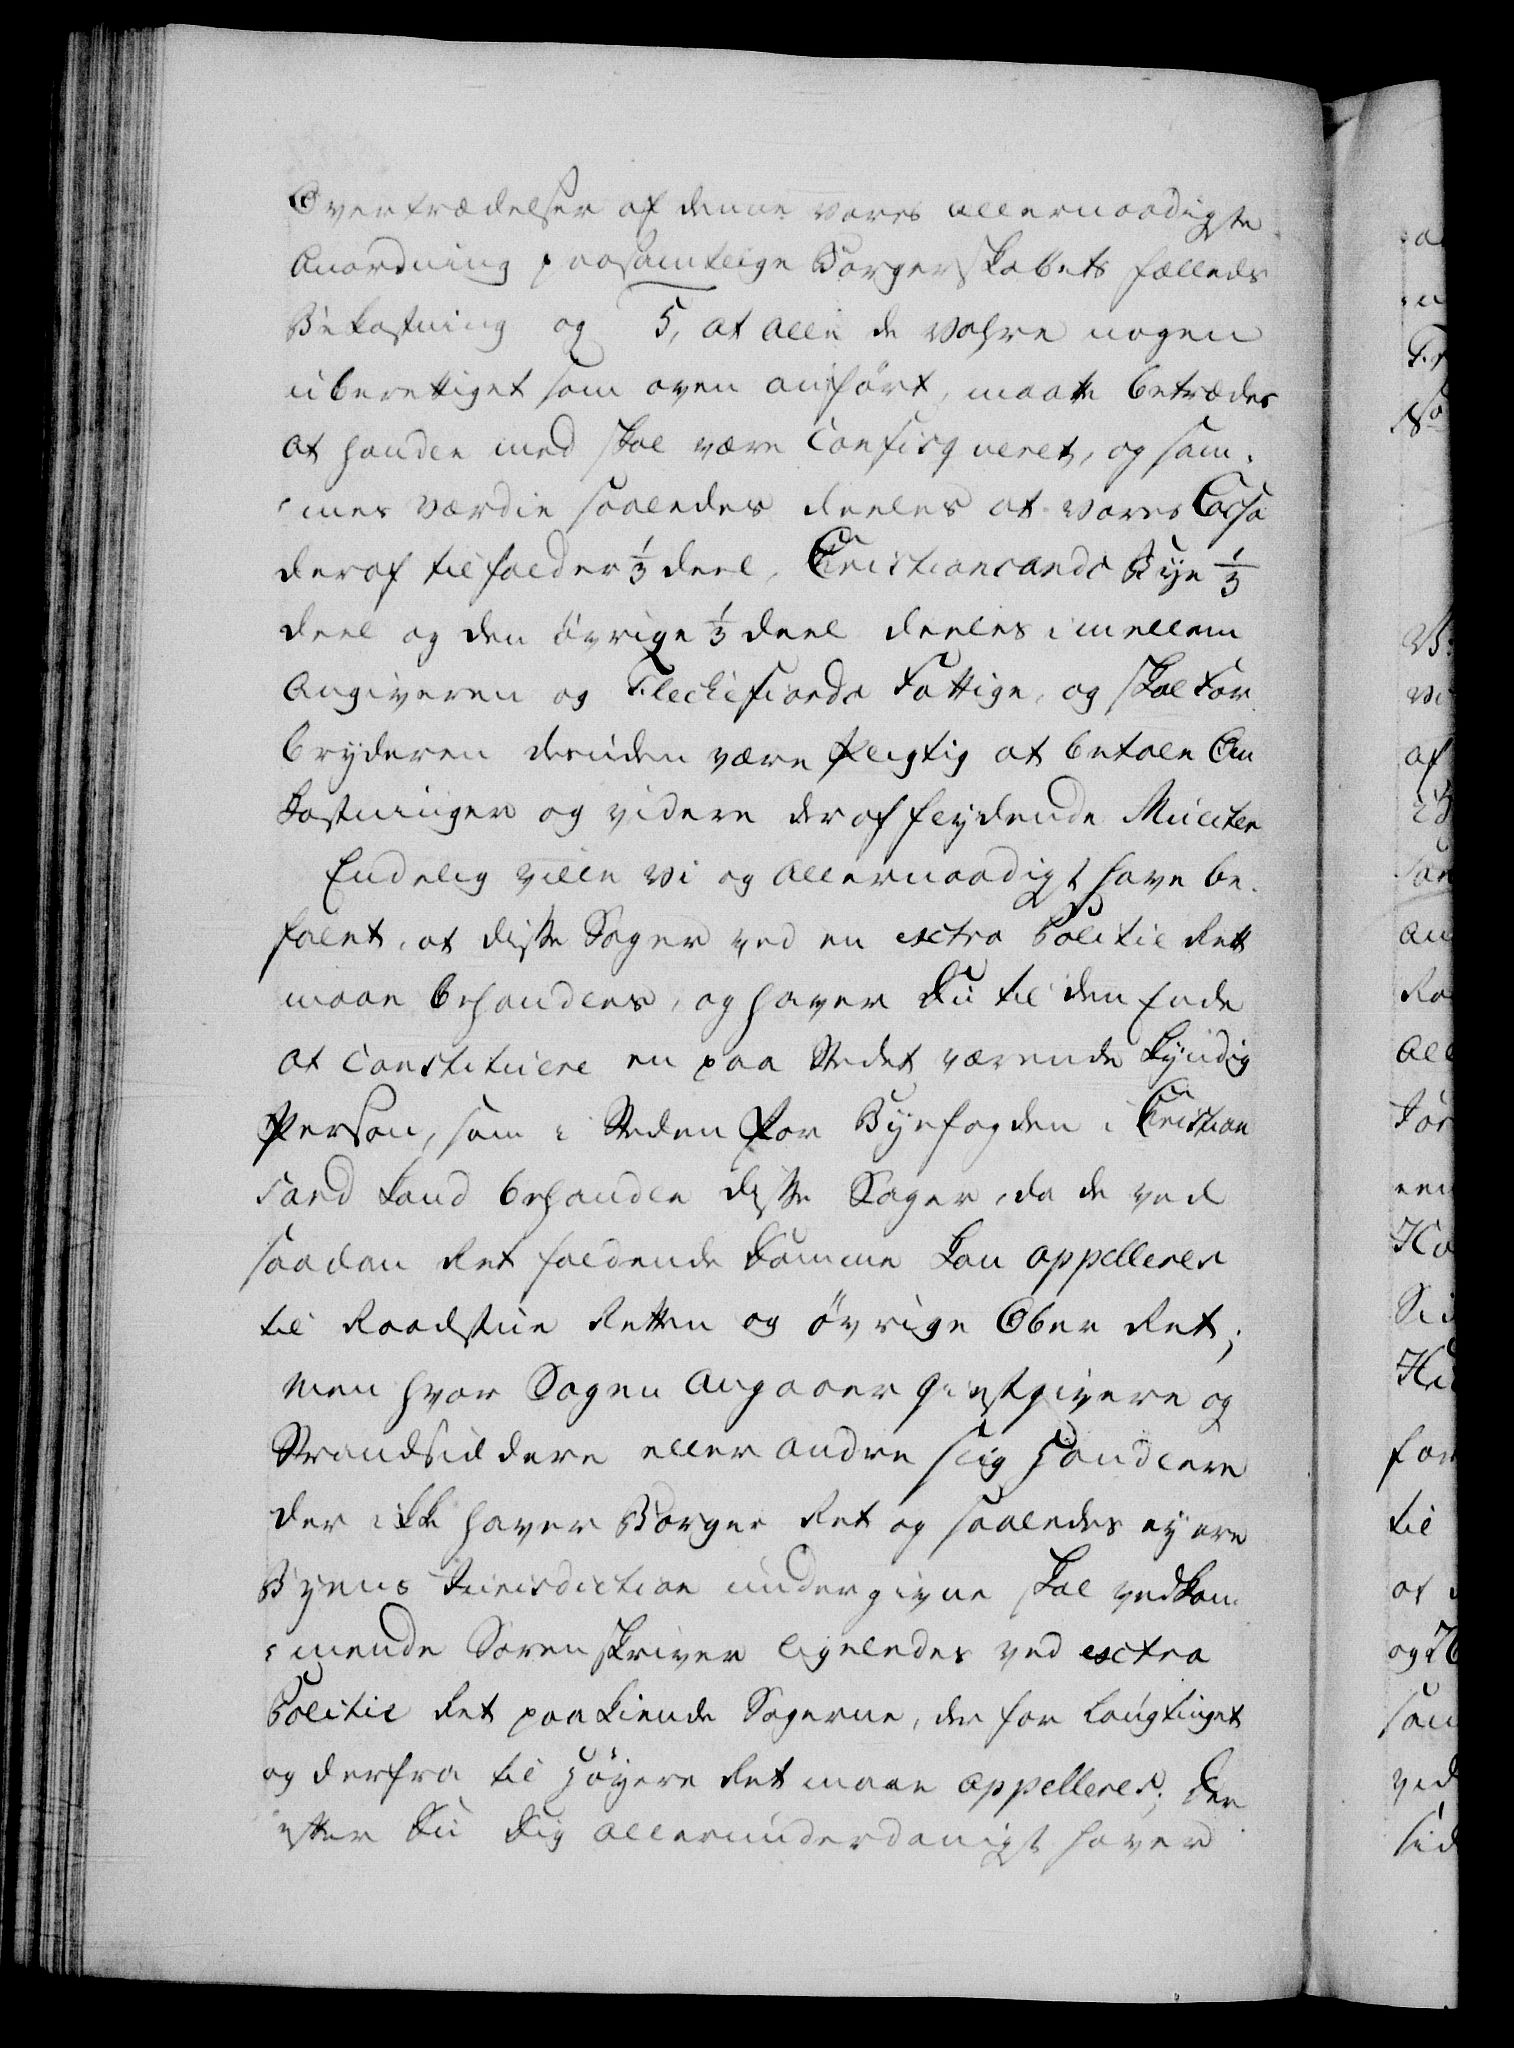 Overtrædelser af denne vores allernaadigste
Anordning paa samtlige Borgerskabets fælleds
Bekostning og 5, at alle de Vahre nogen
uberettiget som oven anført, maatte betrædes
at handle med skal være Confisqueret, og sam-
mes Værdie saaledes deeles at vores Cassa
deraf tilfalder 1/3 deel, Christiansands Bye 1/3
deel og den øvrige 1/3 deel deeles imellem
Angiveren og Fleckefiords Fattige, og skal For
bryderen desuden være pligtig at betale Om
kostninger og videre deraf flydende Mulcter
Endelig ville Vi og Allernaadigst have be-
falet, at disse Sager ved en extra Politie Rett
maae behandles, og haver Du til den Ende
at Constituere en paa Stedet værende kyndig
Person, som i Steden for Byefogden i Christian
sand kand behandle disse Sager, da de ved
saadan Ret faldende Domme kan appelleres
til Raadstue Retten og øvrige Ober Ret;
men hvor Sagen angaaer Giestgivere og
Strandsiddere eller andre slig Handlere
der ikke haver Borger Ret og saaledes ey ere
Byens Jurisdiction undergivne skal vedkom-
mende Sorenskriver ligeledes ved extra
Politie Ret paakiende Sagerne, der for Laugtinget
og derfra til Høyere Ret maae appelleres; Der
efter Du Dig allerunderdanigst haver